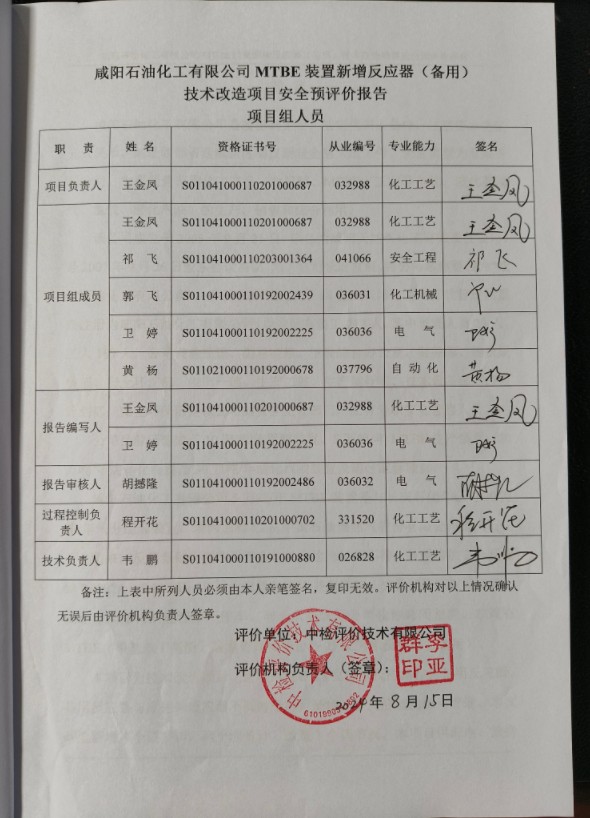 咸阳石油化工有限公司 MTBE 装置新增反应器（备用）
技术改造项目安全预评价报告
项目组人员
职 责 姓 名 资格证书号 从业编号 专业能力 签名
项目负责人 王金凤 S011041000110201000687 032988 化工工艺 王金凤
项目组成员 王金凤 S011041000110201000687 032988 化工工艺 王金凤
祁 飞 S011041000110203001364 041066 安全工程 祁飞
郭 飞 S011041000110192002439 036031 化工机械
卫 婷 S011041000110192002225 036036 电 气
黄 杨 S011021000110192000678 037796 自 动 化 黄杨
报告编写人 王金凤 S011041000110201000687 032988 化工工艺 王金凤
卫 婷 S011041000110192002225 036036 电 气
报告审核人 胡撼隆 S011041000110192002486 036032 电 气
过程控制负责人 程开花 S011041000110201000702 331520 化工工艺 程开花
技术负责人 韦 鹏 S011041000110191000880 026828 化工工艺
备注：上表中所列人员必须由本人亲笔签名，复印无效。评价机构对以上情况确认
无误后由评价机构负责人签章。
评价单位：中检评价技术有限公司
评价机构负责人（签章）：
李亚群印
中检评价技术有限公司
2024 年 8 月 15 日